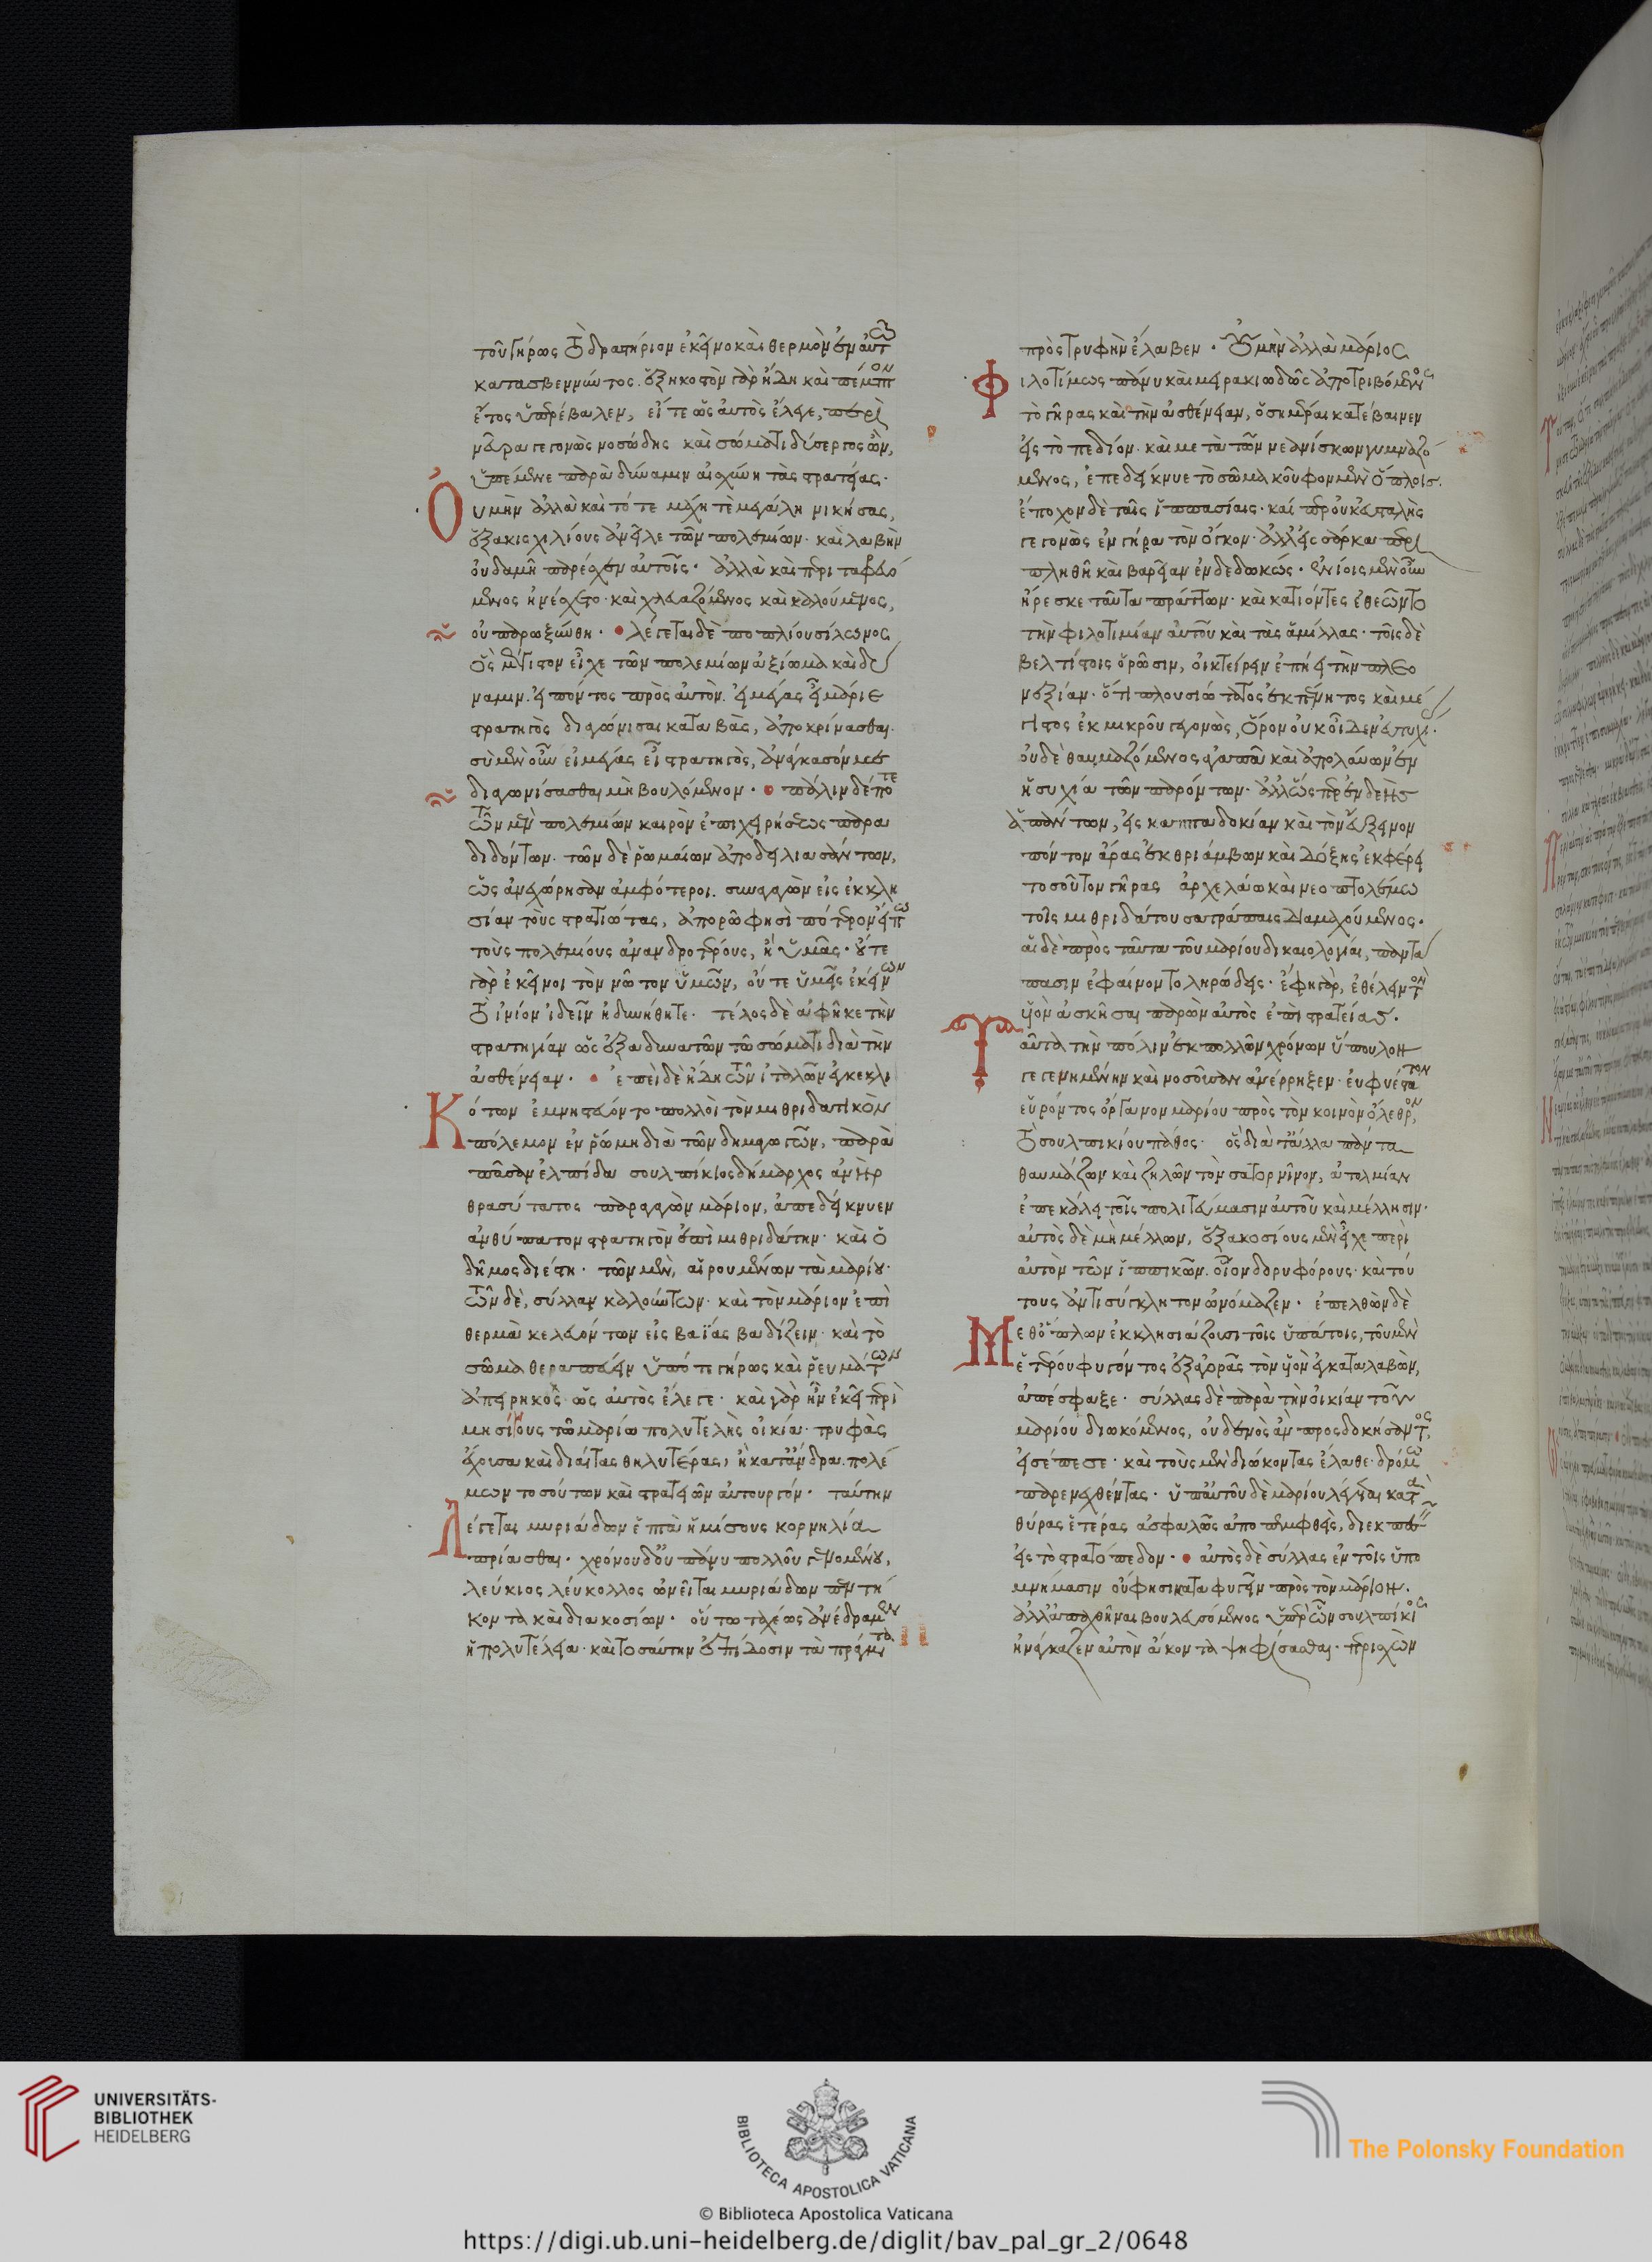 τοῦ γήρως τὸ δραστήριον ἐκεῖνο καὶ θερμὸν ἐν αὐτῶ
κατασβεννύντος. ἑξηκοστὸν γὰρ ἤδη καὶ πέμπτον
ἔτος ὑπερέβαλεν, εἴτε ὡς αὐτὸς ἔλεγε, περὶ
νεῦρα γεγονὼς νοσώδης καὶ σώματι δύσεργος ὢν,
ὑπέμεινε παρὰ δύναμιν αἰσχύνη τὰς στρατείας·
Οὐ μὴν ἀλλὰ καὶ τότε μάχη τὲ μεγάλη νικήσας,
ἑξακισχιλίους ἀνεῖλε τῶν πολεμίων· καὶ λαβὴν
οὐδαμῆ παρέσχεν αὐτοῖς· ἀλλὰ καὶ περιταφρευό
μενος ἠνέσχετο· καὶ χλευαζόμενος καὶ καλούμενος,
οὐ παρωξύνθη· λέγεται δὲ ποπλίου σίλωνος
ὃς μέγιστον εἶχε τῶν πολεμίων ἀξίωμα καὶ δύ
ναμιν. εἰπόντος πρὸς αὐτὸν. εἰ μέγας εἶ μάριε
στρατηγὸς διαγώνισαι καταβὰς, ἀποκρίνασθαι.
σὺ μὲν οὖν εἰ μέγας εἶ στρατηγὸς, ἀνάγκασόν με
διαγωνίσασθαι μὴ βουλόμενον· πάλιν δέ ποτε
τῶν μὲν πολεμίων καιρὸν ἐπιχειρήσεως παρα
διδόντων. τῶν δὲ ῥωμαίων ἀποδειλιασάντων,
ὡς ἀνεχώρησαν ἀμφότεροι. συναγαγὼν εἰς ἐκκλη
σίαν τοὺς στρατιώτας, ἀπορῶ φησὶ πότερον εἴπω
τοὺς πολεμίους ἀνανδροτέρους, ἢ ὑμᾶς· οὔτε
γὰρ ἐκεῖνοι τὸν νῶτον ὑμῶν, οὔτε ὑμεῖς ἐκείνων
τὸ ἰνίον ἰδεῖν ἠδυνήθητε· τέλος δὲ ἀφῆκε τὴν
στρατηγίαν ὡς ἐξαδυνατῶν τῶ σώματι διὰ τὴν
ἀσθένειαν· ἐπεὶ δὲ ἤδη τῶν ἰταλῶν ἐγκεκλι
Κότων ἐμνηστεύοντο πολλοὶ τὸν μιθριδατικὸν
πόλεμον ἐν ῥώμη διὰ τῶν δημαγωγῶν, παρὰ
πᾶσαν ἐλπίδα σουλπίκιος δήμαρχος ἀνὴρ
θρασύτατος παραγαγὼν μάριον, ἀπεδείκνυεν
ἀνθύπατον στρατηγὸν ἐπὶ μιθριδάτην· καὶ ὁ
δῆμος διέστη· τῶν μὲν, αἱρουμένων τὰ μαρίου·
τῶν δὲ, σύλλαν καλούντων· καὶ τὸν μάριον ἐπὶ
θερμὰ κελευόντων εἰς βαΐας βαδίζειν· καὶ τὸ
σῶμα θεραπεύειν ὑπό τε γήρως καὶ ῥευμάτων
ἀπειρηκὸς ὡς αὐτὸς ἔλεγε· καὶ γὰρ ἦν ἐκεῖ περὶ
μησίνους τῶ μαρίω πολυτελὴς οἰκία· τρυφὰς
ἔχουσα καὶ διαίτας θηλυτέρας, ἢ κατ' ἄνδρα πολέ
μων τοσούτων καὶ στρατειῶν αὐτουργόν· ταύτην
Λέγεται μυριάδων ἑπτὰ ἡμίσους κορνηλία
πρίασθαι· χρόνου δ' οὐ πάνυ πολλοῦ γενομένου,
λεύκιος λεύκολλος ὠνεῖται μυριάδων πεντή
κοντα καὶ διακοσίων· οὕτω ταχέως ἀνέδραμεν
ἡ πολυτέλεια· καὶ τοσαύτην ἐπίδοσιν τὰ πράγματα
πρὸς τρυφὴν ἔλαβεν· Οὐ μὴν ἀλλὰ μάριος
Φιλοτίμως πάνυ καὶ μειρακιωδῶς ἀποτριβόμενος
τὸ γῆρας καὶ τὴν ἀσθένειαν, ὁσημέραι κατέβαινεν
εἰς τὸ πεδίον· καὶ μετὰ τῶν νεανίσκων γυμναζό
μενος, ἐπεδείκνυε τὸ σῶμα κοῦφον μὲν ὅπλοις.
ἔποχον δὲ ταῖς ἱππασίαις· καίπερ οὐκ εὐσταλὴς
γεγονὼς ἐν γήρα τὸν ὄγκον· ἀλλ' εἰς σάρκα περι
πληθῆ καὶ βαρεῖαν ἐνδεδωκώς· ἐνίοις μὲν οὖν
ἤρεσκε ταῦτα πράττων· καὶ κατιόντες ἐθεῶντο
τὴν φιλοτιμίαν αὐτοῦ καὶ τὰς ἁμίλλας· τοῖς δὲ
βελτίστοις ὁρῶσιν, οἰκτείρειν ἐπήει τὴν πλεο
νεξίαν· ὅτι πλουσιώτατος ἐκ πένητος καὶ μέ
γιστος ἐκ μικροῦ γεγονὼς, ὅρον οὐκ οἶδεν εὐτυχί·
οὐδὲ θαυμαζόμενος ἀγαπᾶ καὶ ἀπολαύων ἐν
ἡσυχία τῶν παρόντων· ἀλλ' ὥσπερ ἐνδεὴς
ἁπάντων, εἰς καππαδοκίαν καὶ τὸν εὔξεινον
πόντον ἄρας ἐκ θριάμβων καὶ δόξης ἐκφέρει
τοσοῦτον γῆρας ἀρχελάω καὶ νεοπτολέμω
τοῖς μιθριδάτου σατράπαις διαμαχούμενος·
αἱ δὲ πρὸς ταῦτα τοῦ μαρίου δικαιολογίαι, παντά
πασιν ἐφαίνοντο ληρώδεις· ἔφη γὰρ, ἐθέλειν τὸν
υἱὸν ἀσκῆσαι παρὼν αὐτὸς ἐπὶ στρατείας.
Ταῦτα τὴν πόλιν ἐκ πολλῶν χρόνων ὕπουλον
γεγενημένην καὶ νοσοῦσαν ἀνέρρηξεν· εὐφυέστατον
εὑρόντος ὄργανον μαρίου πρὸς τὸν κοινὸν ὄλεθρον,
τὸ σουλπικίου πάθος· ὃς διὰ τἄλλα πάντα
θαυμάζων καὶ ζηλῶν τὸν σατορνῖνον, ἀτολμίαν
ἐπεκάλει τοῖς πολιτεύμασιν αὐτοῦ καὶ μέλλησιν·
αὐτὸς δὲ μὴ μέλλων, ἑξακοσίους μὲν εἶχε περὶ
αὐτὸν τῶν ἱππικῶν. οἷον δορυφόρους· καὶ τού
τους ἀντισύγκλητον ὠνόμαζεν· ἐπελθὼν δὲ
Μεθ' ὅπλων ἐκκλησιάζουσι τοῖς ὑπάτοις, τοῦ μὲν
ἑτέρου φυγόντος ἐξ ἀγορᾶς τὸν υἱὸν ἐγκαταλαβὼν,
ἀπέσφαξε· σύλλας δὲ παρὰ τὴν οἰκίαν τοῦ
μαρίου διωκόμενος, οὐδενὸς ἂν προσδοκήσαντος,
εἰσέπεσε· καὶ τοὺς μὲν διώκοντας ἔλαθε δρόμω
παρενεχθέντας· ὑπ' αὐτοῦ δὲ μαρίου λέγεται κατὰ
θύρας ἑτέρας ἀσφαλῶς ἀποπεμφθεὶς, διεκπεσεῖν
εἰς τὸ στρατόπεδον· αὐτὸς δὲ σύλλας ἐν τοῖς ὑπο
μνήμασιν οὔ φησι καταφυγεῖν πρὸς τὸν μάριον.
ἀλλ' ἀπαχθῆναι βουλευσόμενος ὑπὲρ ὧν σουλπίκιος
ἠνάγκαζεν αὐτὸν ἄκοντα ψηφίσασθαι· περισχὼν
UNIVERSITÄTS-
BIBLIOTHEK
HEIDELBERG
BIBLIOTECA APOSTOLICA VATICANA
The Polonsky Foundation
© Biblioteca Apostolica Vaticana
https://digi.ub.uni-heidelberg.de/diglit/bav_pal_gr_2/0648